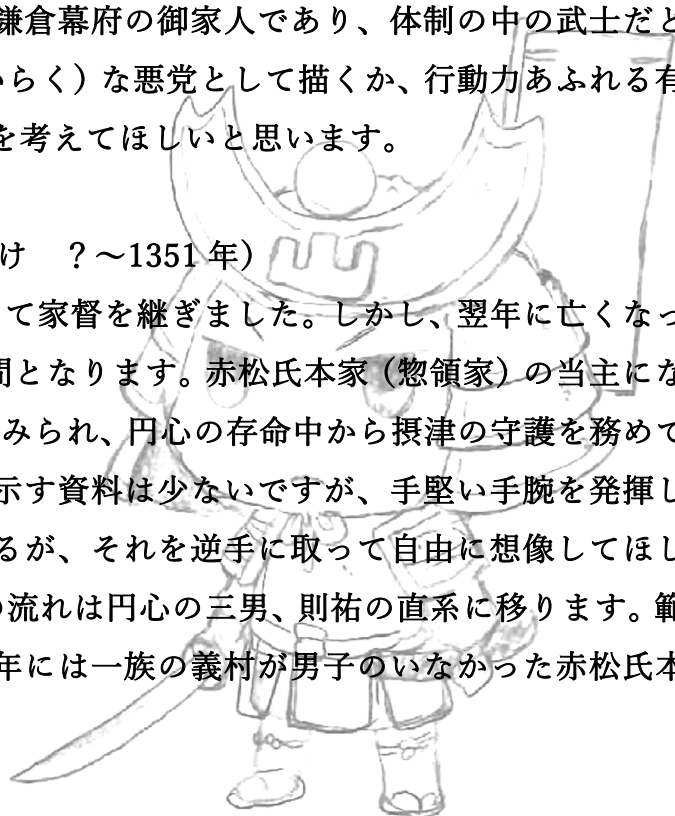 鎌倉幕府の御家人であり、体制の中の武士だと
いらく）な悪党として描くか、行動力あふれる有
を考えてほしいと思います。
け　？～1351 年）
て家督を継ぎました。しかし、翌年に亡くなっ
間となります。赤松氏本家（惣領家）の当主にな
みられ、円心の存命中から摂津の守護を務めて
示す資料は少ないですが、手堅い手腕を発揮し
るが、それを逆手に取って自由に想像してほし
の流れは円心の三男、則祐の直系に移ります。範
年には一族の義村が男子のいなかった赤松氏本